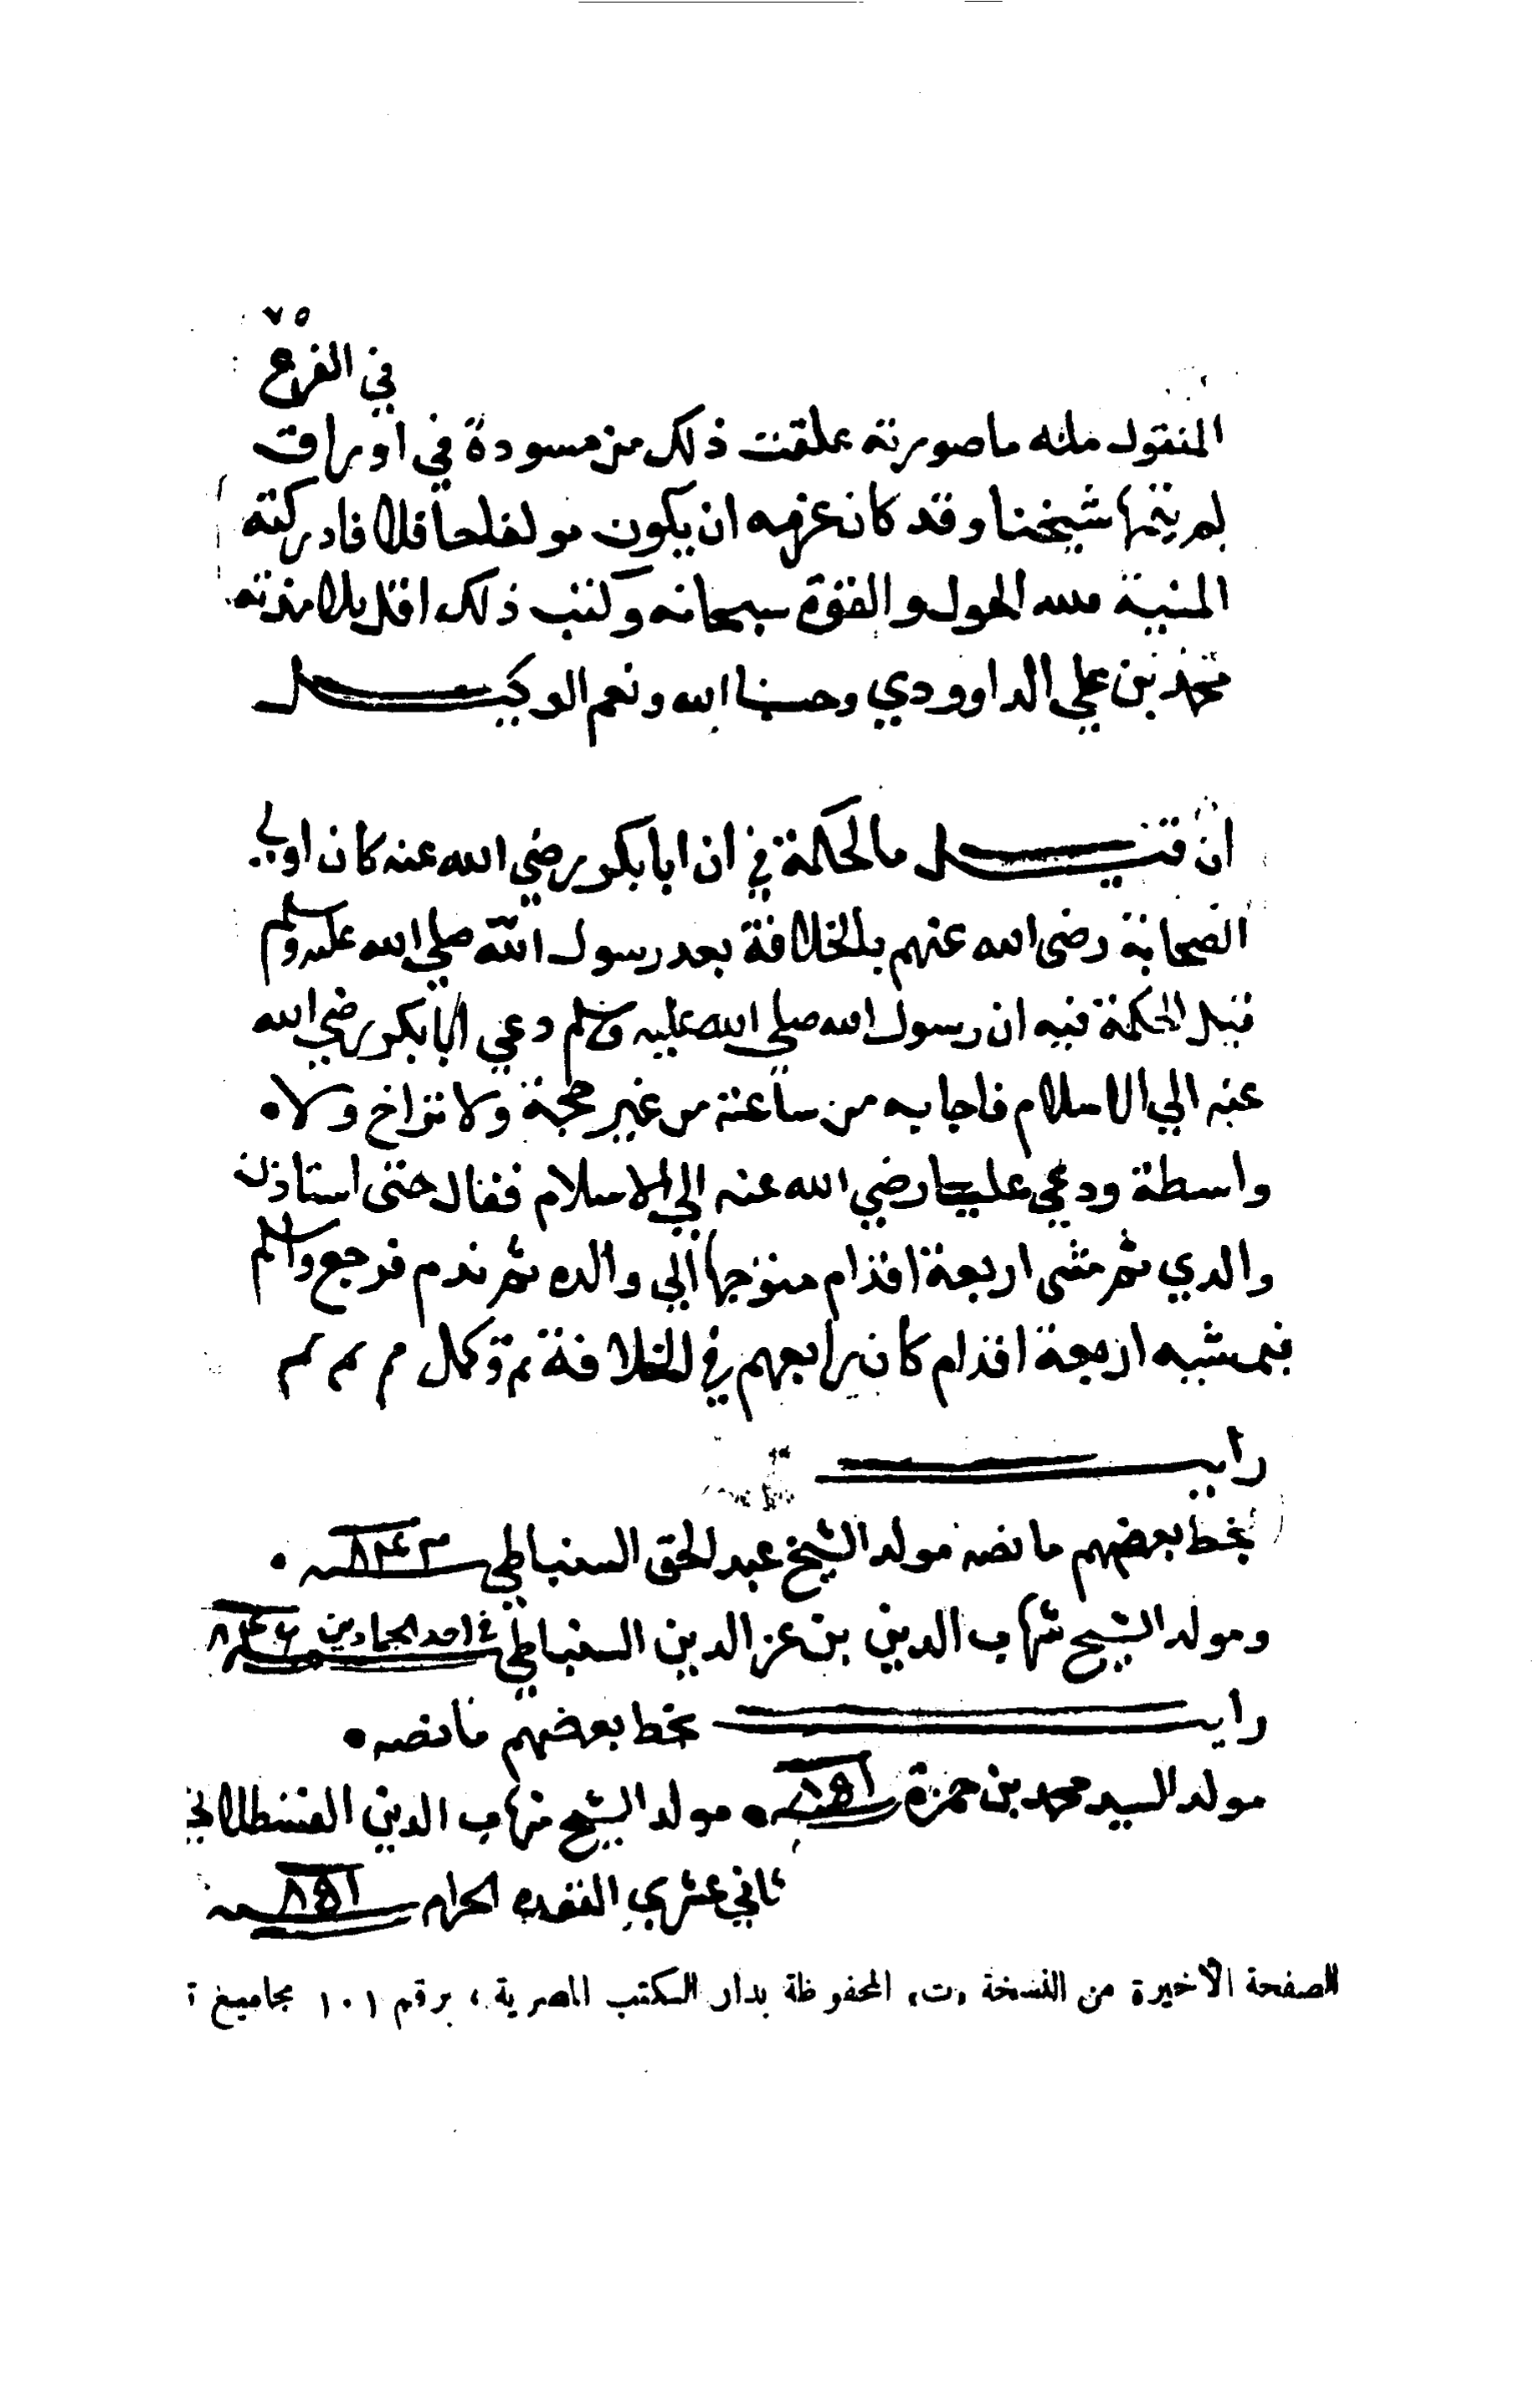 ٧٥
في الفرع
المنقول منه ما صورته علقت ذلك من مسودة في اوراق
لم يتمها شيخنا وقد كان عزمه ان يكون مولفا حافلا فادركته
المنية فلله الحول والقوة سبحانه وكتب ذلك اقل تلامذته
محمد بن علي الداوودي وحسبنا الله ونعم الوكيل
ان قيل ما لحكمة في ان ابا بكر رضي الله عنه كان اولي
الصحابة رضى الله عنهم بالخلافة بعد رسول الله صلي الله عليه وسلم
قيل الحكمة فيه ان رسول الله صلي الله عليه وسلم دعي ابا بكر رضي الله
عنه الي الاسلام فاجابه من ساعته من غير حجة ولا تراخ ولا
واسطة ودعي عليا رضي الله عنه الي الاسلام فقال حتى استاذن
والدي ثم مشى اربعة اقدام متوجها الي والده ثم ندم فرجع واسلم
فبمشيه اربعة اقدام كان رابعهم في الخلافة تم وكمل م م م
رايت
بخط بعضهم ما نصه مولد الشيخ عبد الحق السنباطي سنة ٨٤٢
ومولد الشيخ شهاب الدين بن عز الدين السنباطي في احد الجمادين سنة
رايت بخط بعضهم ما نصه
مولد السيد محمد بن حمزة سنة ٨٥١ مولد الشيخ شهاب الدين القسطلاني
ثاني عشري القعده الحرام سنة ٨٥١
الصفحة الأخيرة من النسخة «ت» المحفوظة بدار الكتب المصرية ، برقم ١٠١ مجاميع ؛